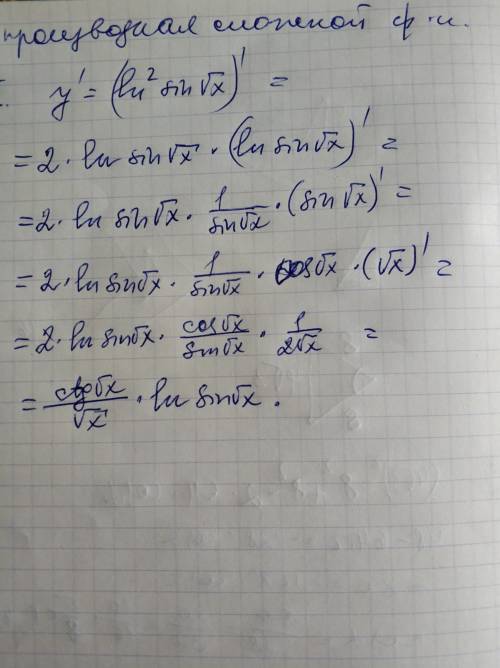 производная сложной ф-и.
y' = (ln² sin√x)' =
= 2 · ln sin√x · (ln sin√x)' =
= 2 · ln sin√x · 1/sin√x · (sin√x)' =
= 2 · ln sin√x · 1/sin√x · cos√x · (√x)' =
= 2 · ln sin√x · cos√x/sin√x · 1/2√x =
= ctg√x/√x · ln sin√x .